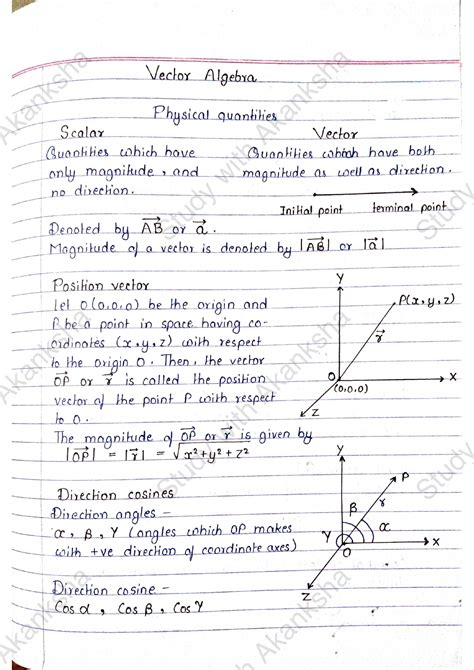 Vector Algebra
Physical quantities
Scalar
Quantities which have
only magnitude, and
no direction.
Vector
Quantities which have both
magnitude as well as direction.
Initial point terminal point
Denoted by $\overrightarrow{AB}$ or $\vec{a}$.
Magnitude of a vector is denoted by $|\overrightarrow{AB}|$ or $|\vec{a}|$
Position vector
Let O(0,0,0) be the origin and
P be a point in space having co-
ordinates (x,y,z) with respect
to the origin O. Then, the vector
$\overrightarrow{OP}$ or $\vec{r}$ is called the position
vector of the point P with respect
to O.
The magnitude of $\overrightarrow{OP}$ or $\vec{r}$ is given by
$|\overrightarrow{OP}| = |\vec{r}| = \sqrt{x^2+y^2+z^2}$
Y
P(x,y,z)
$\vec{r}$
O
(0,0,0)
X
Z
Direction cosines
Direction angles -
α, β, γ (angles which OP makes
with +ve direction of coordinate axes)
Direction cosine -
Cos α, Cos β, Cos γ
Y
P
r
β
α
γ
O
X
Z
Study with Akanksha
Study with Akanksha
Akanksha
Akanksha
Akanksha
Study
Study
Akanksha